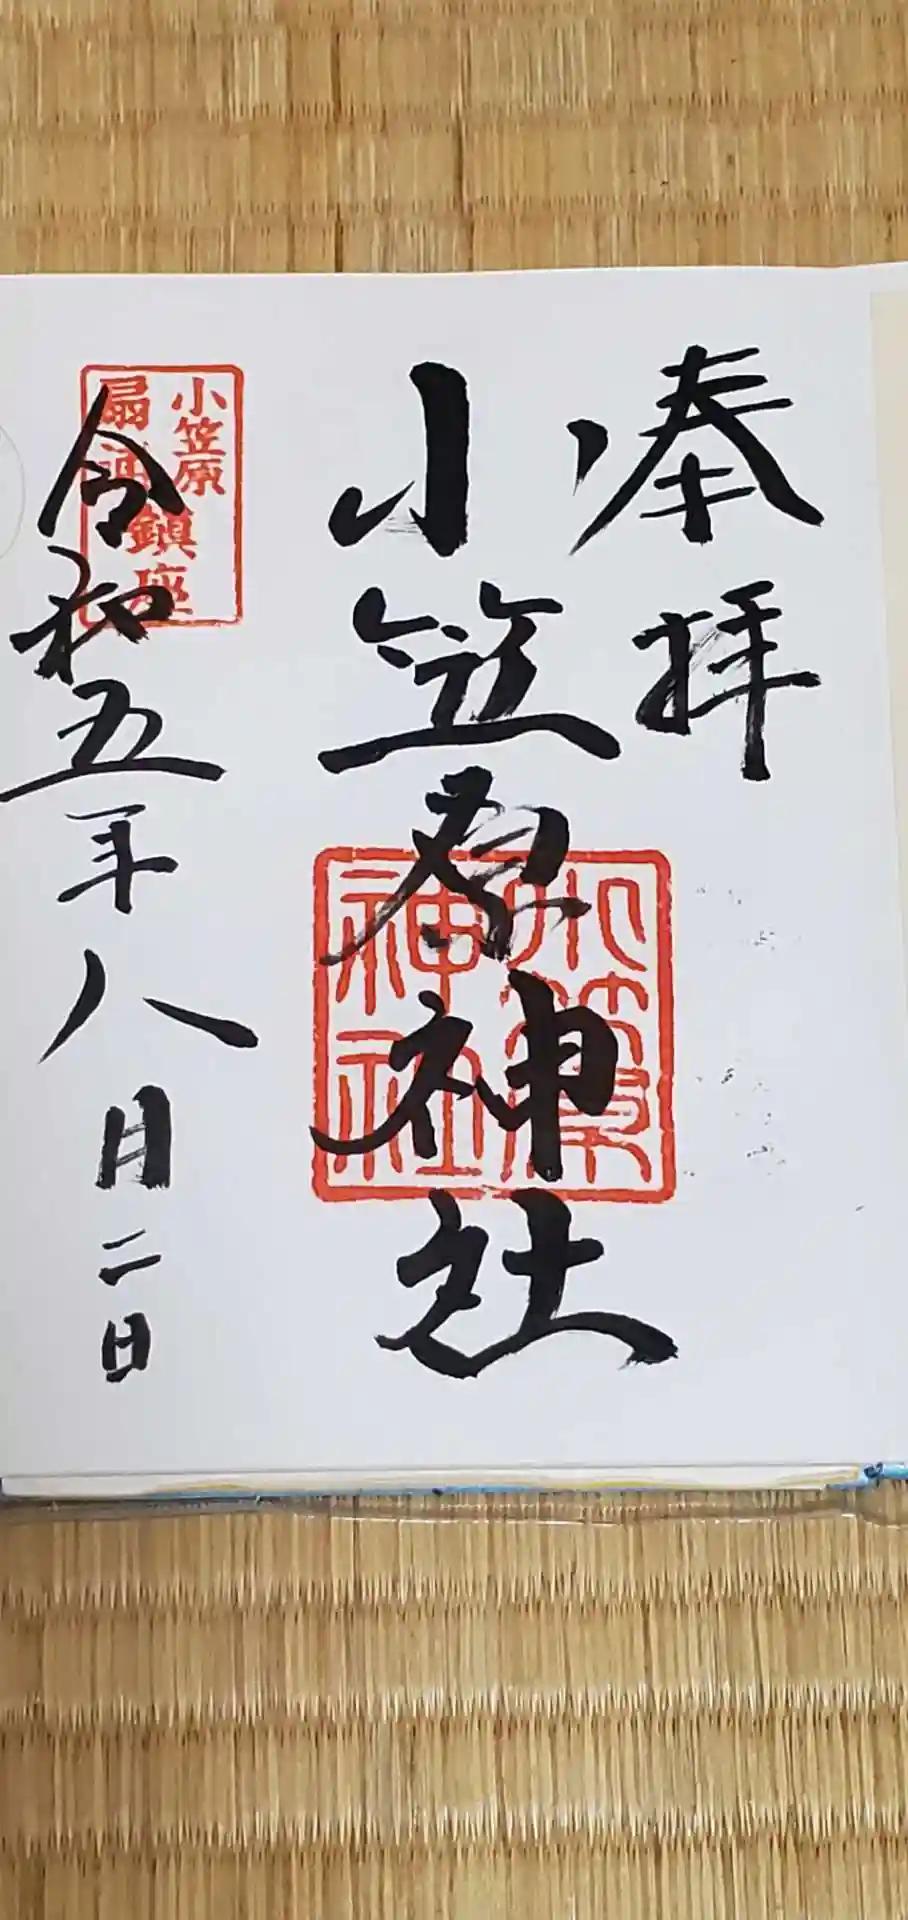 奉拝
小笠原神社
小笠原神社
小笠原
扇浦鎮座
令和五年八月二日